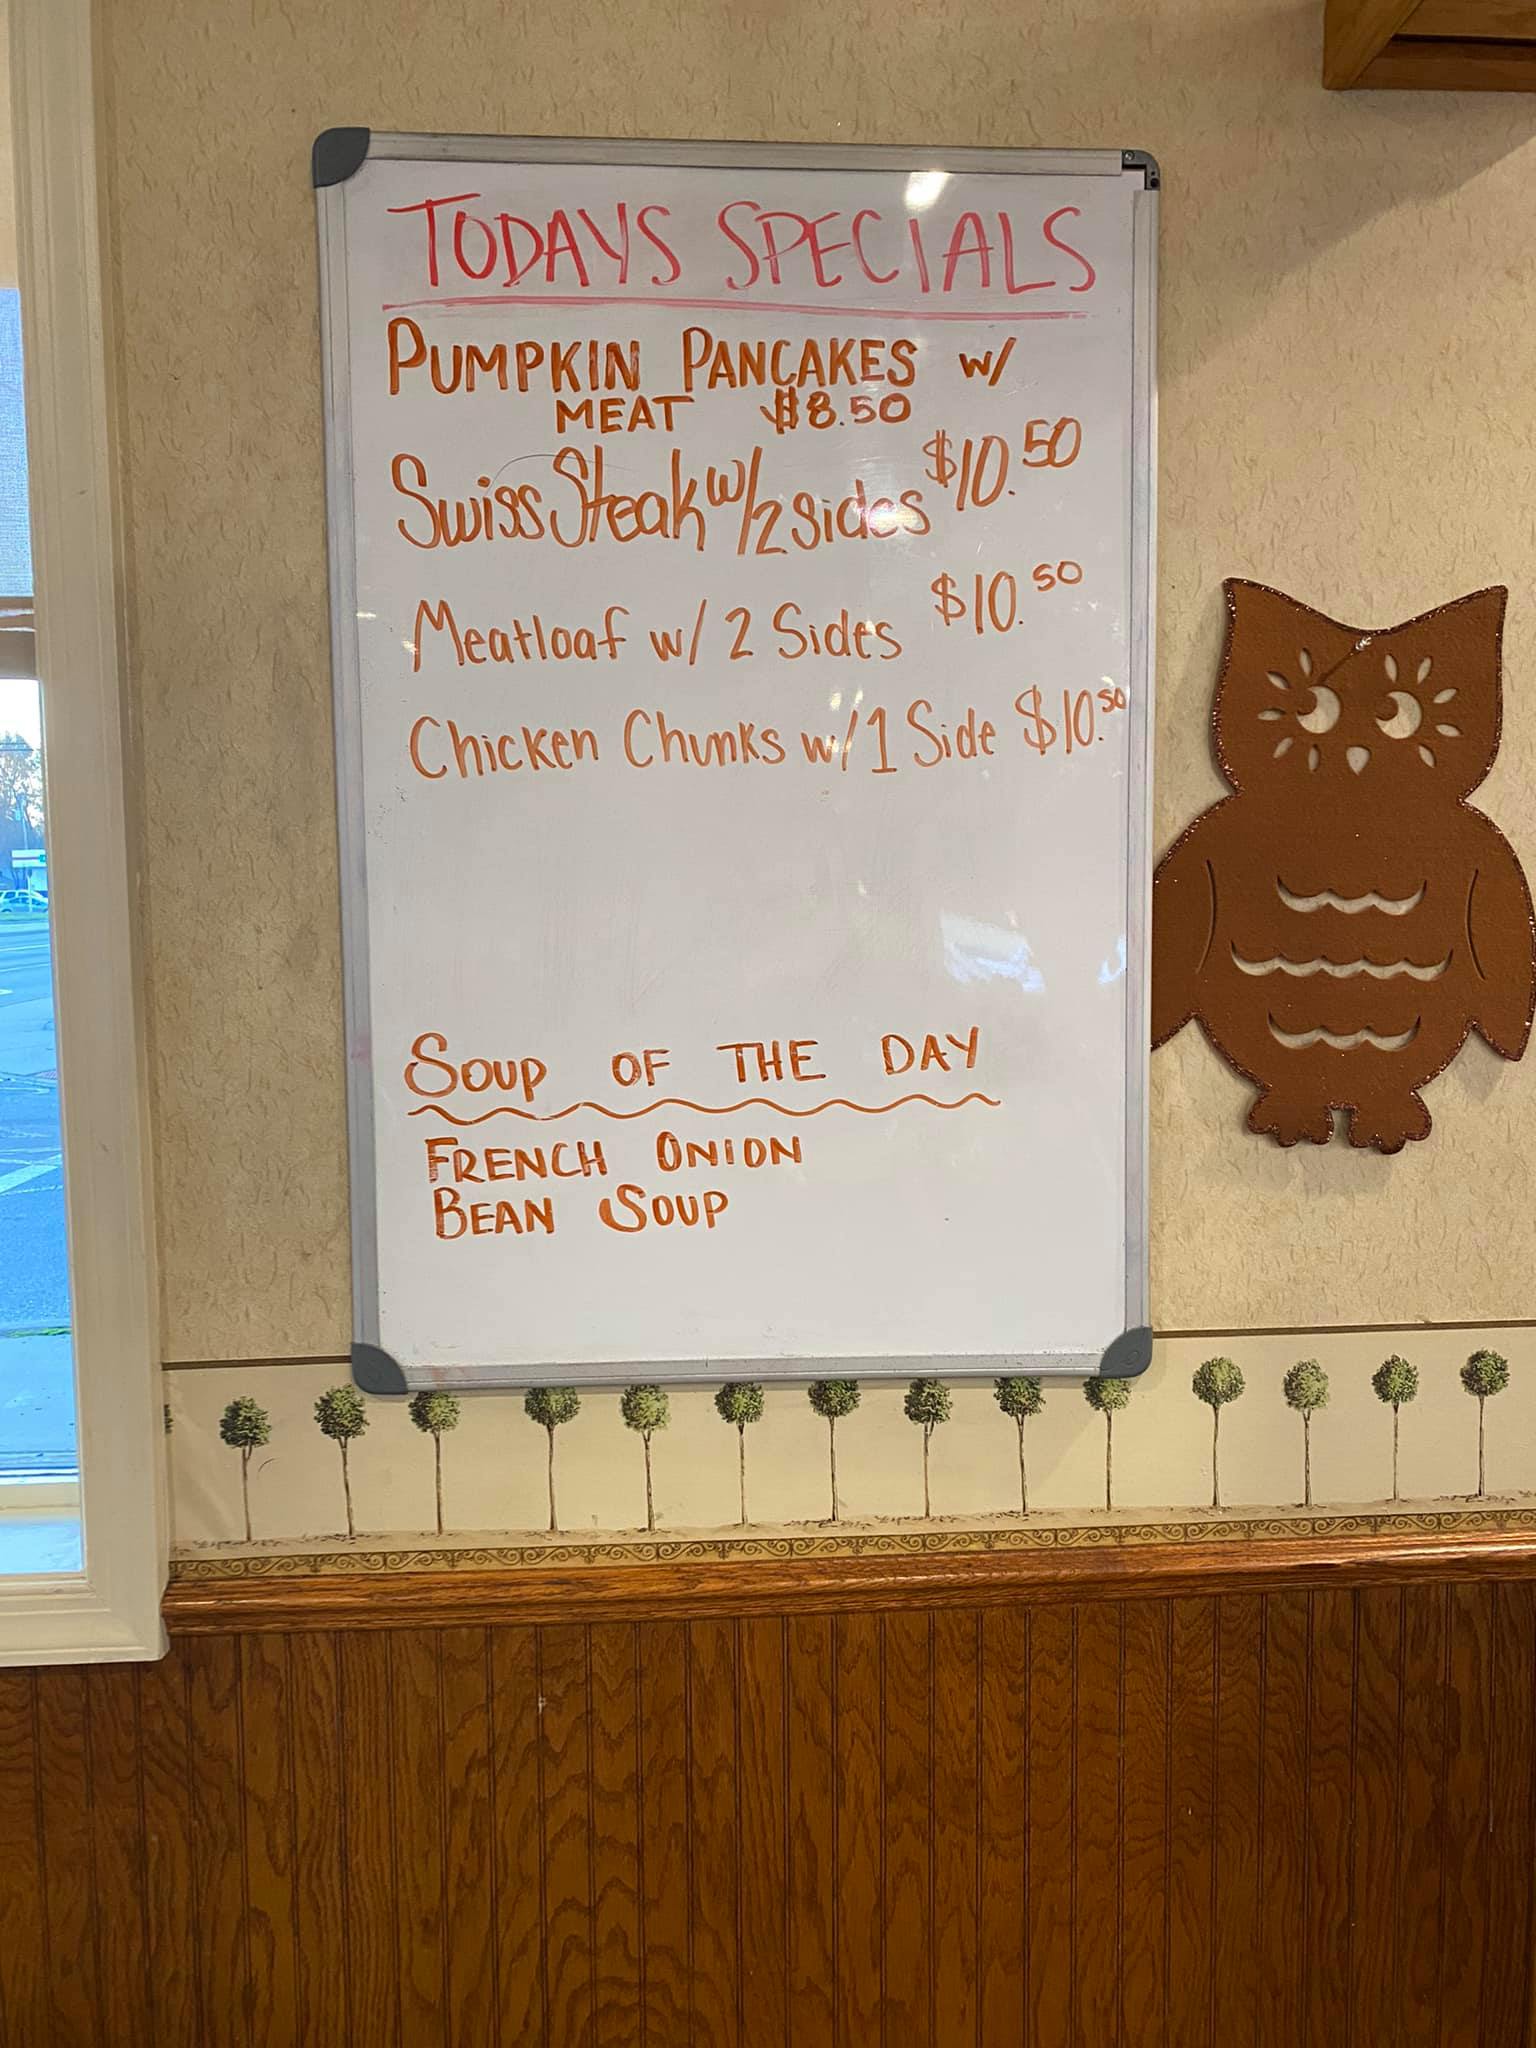 TODAYS SPECIALS
PUMPKIN PANCAKES w/
MEAT $8.50
Swiss Steak w/2 sides $10.50
Meatloaf w/ 2 Sides $10.50
Chicken Chunks w/1 Side $10.50
SOUP OF THE DAY
FRENCH ONION
BEAN SOUP